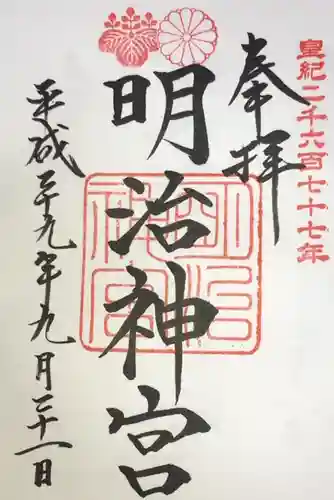 皇紀二千六百七十七年
奉拝
明治神宮
明治神宮
平成二十九年九月二十一日